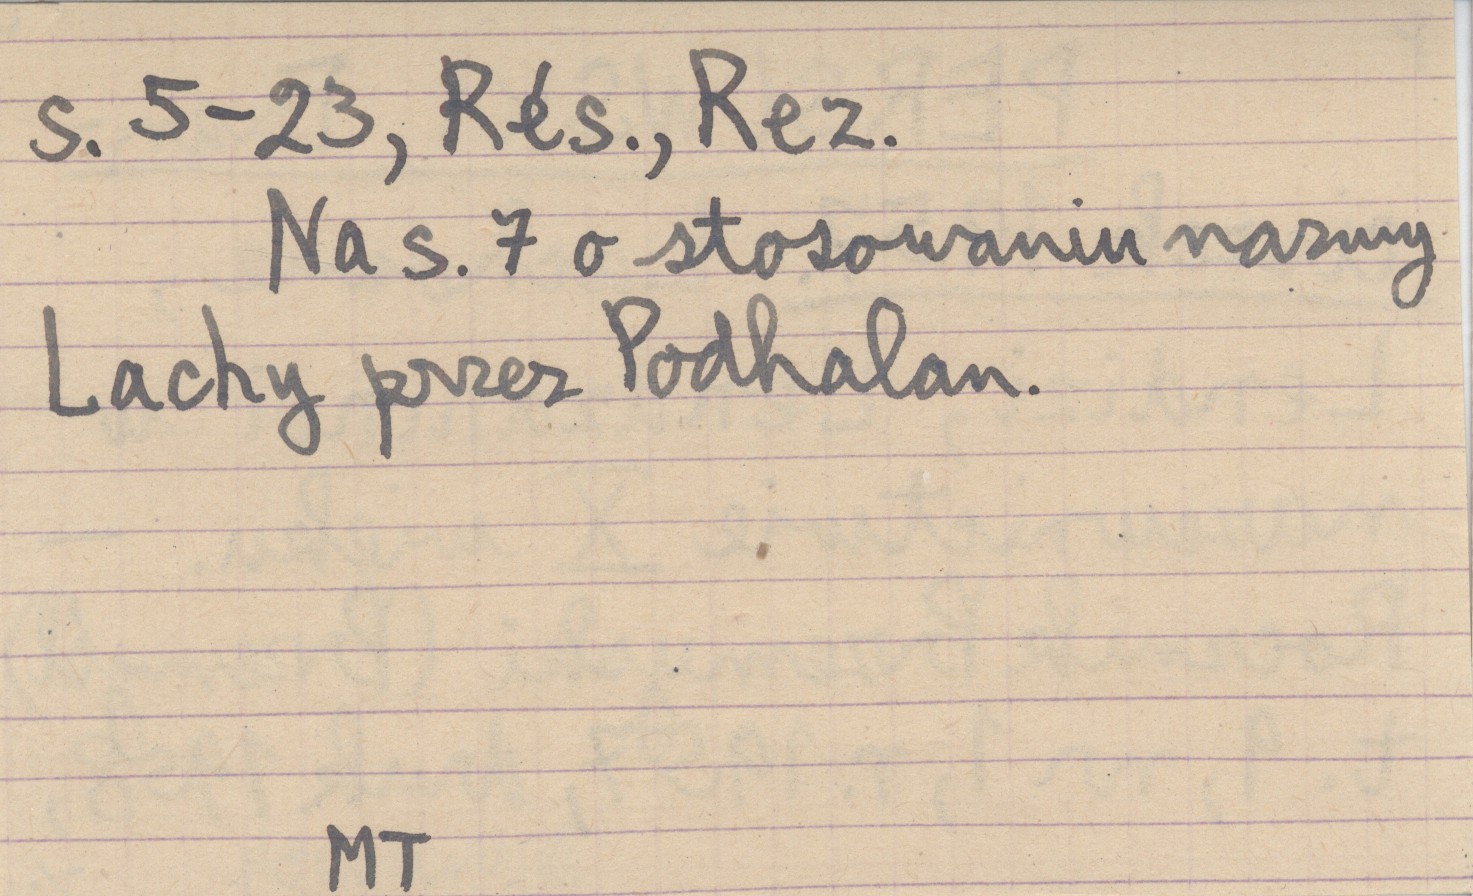 s. 5-23, Rés., Rez.
Na s. 7 o stosowaniu nazwy
Lachy przez Podhalan.
MT